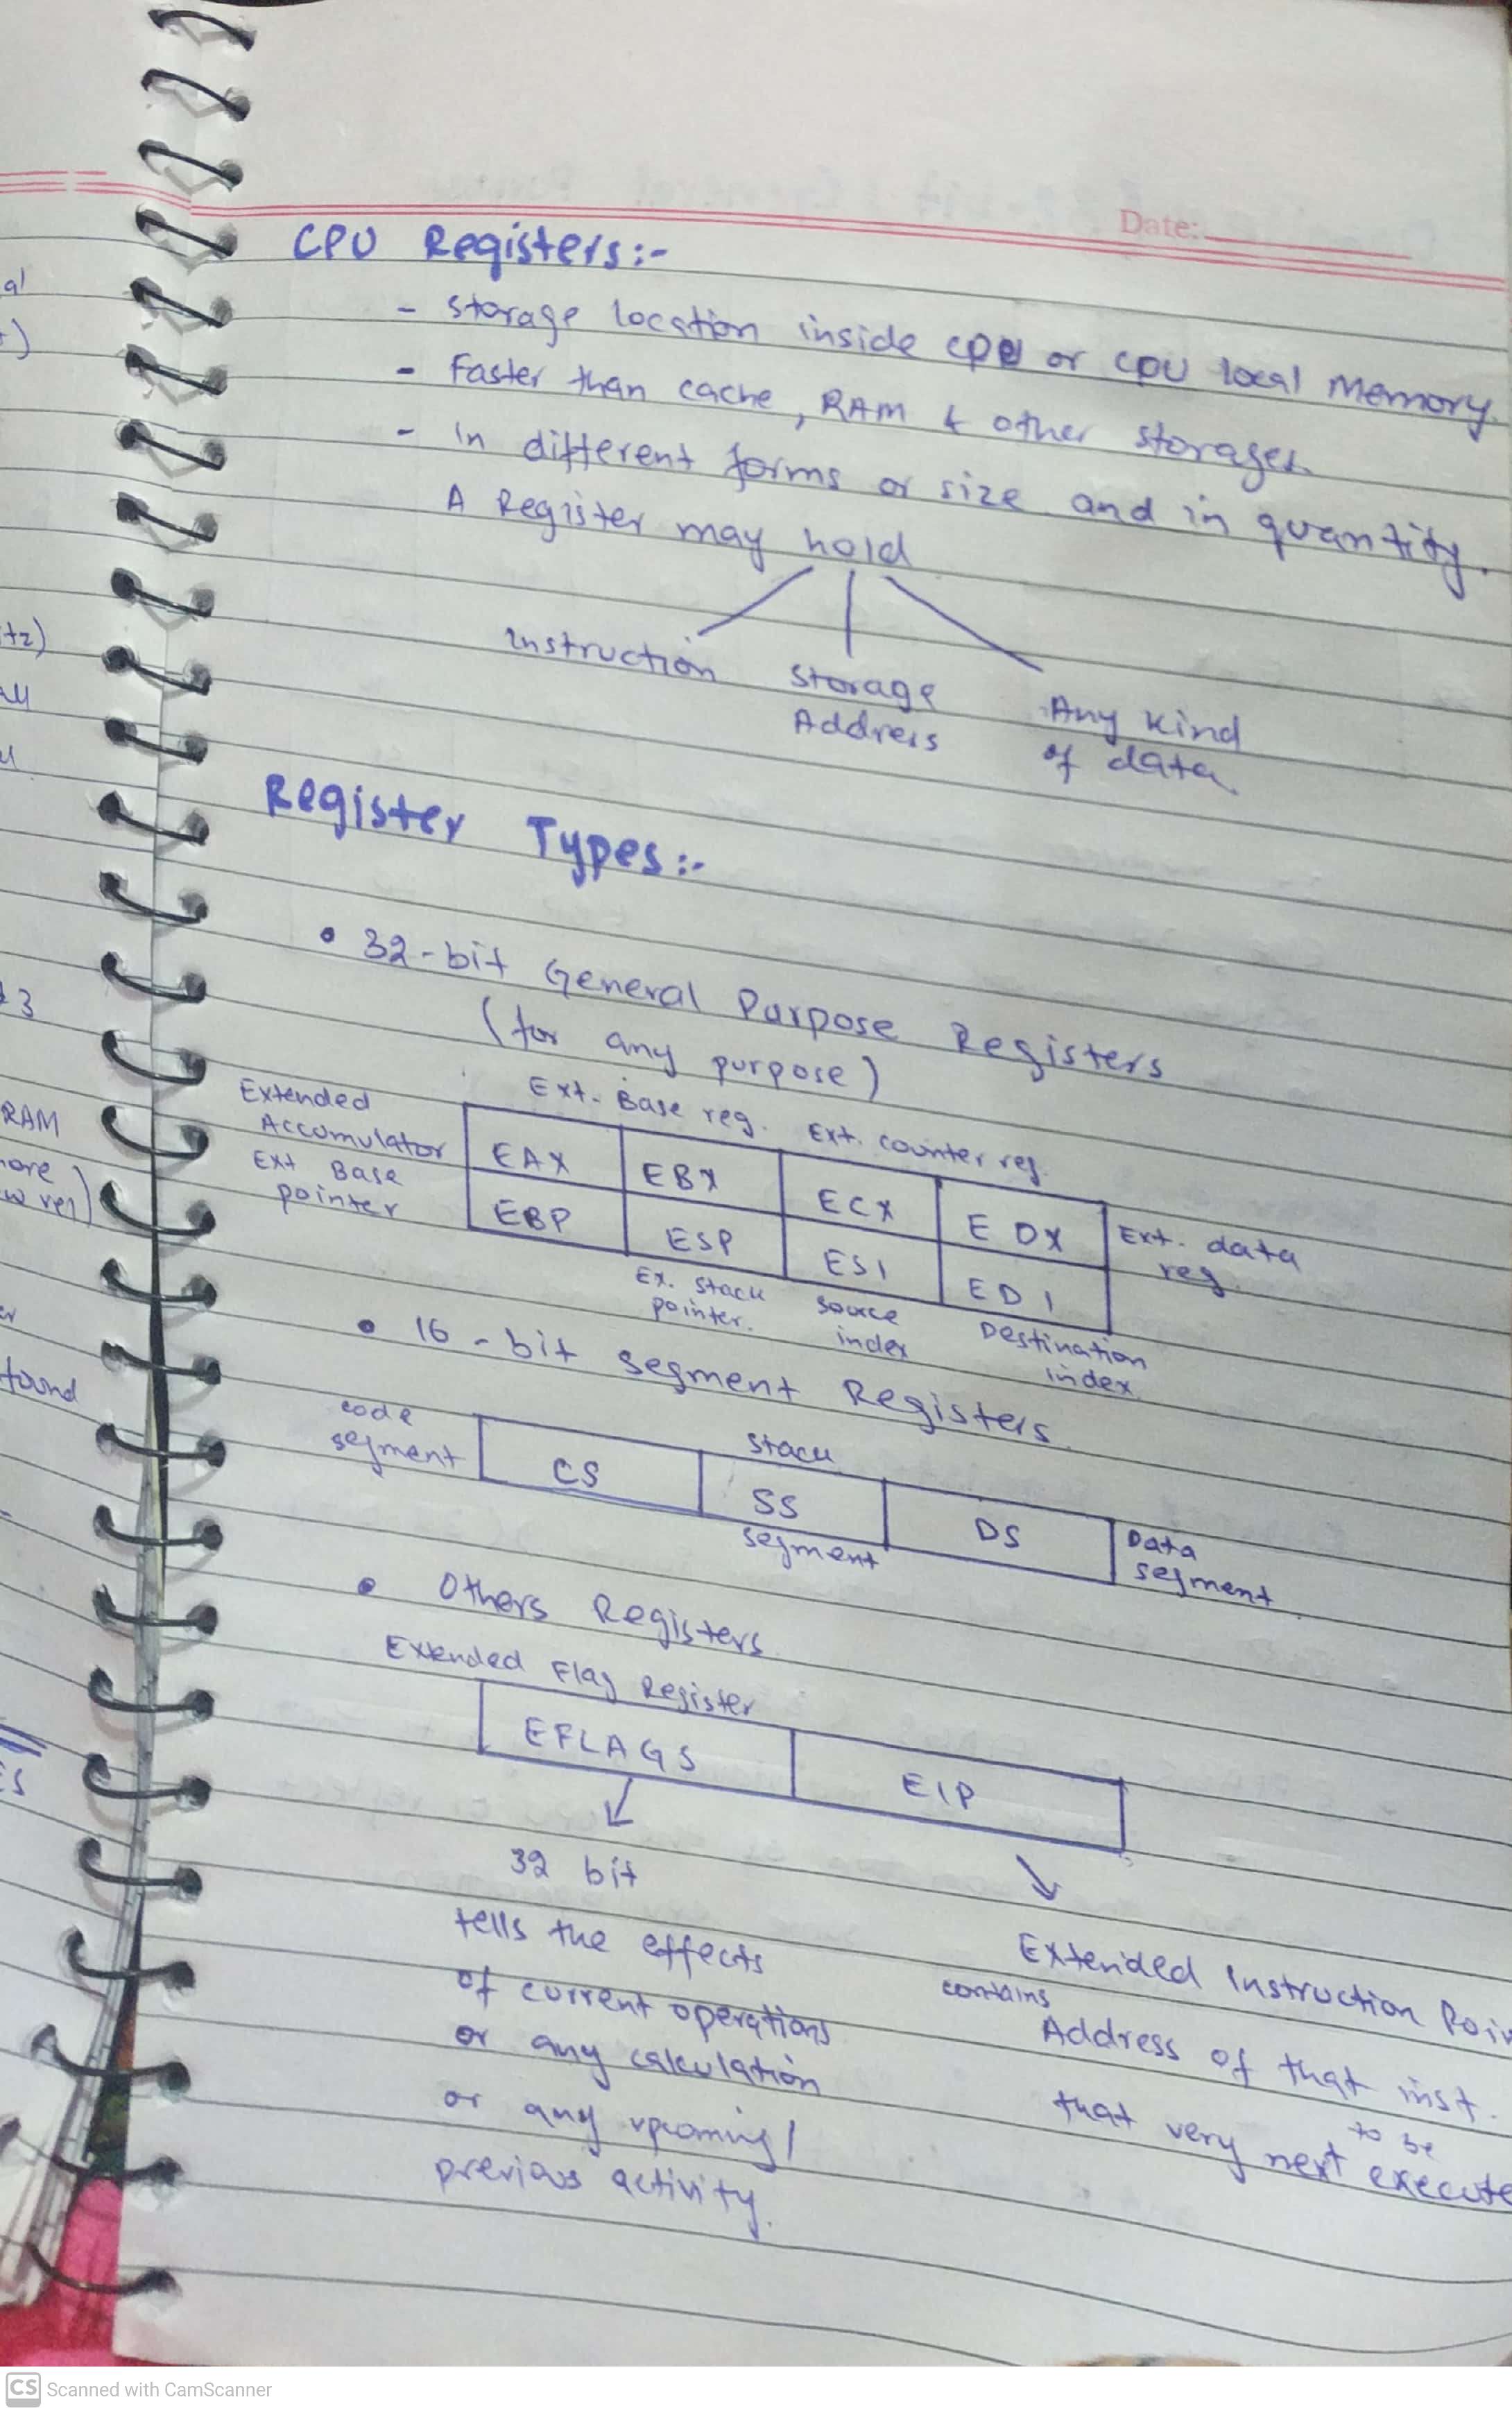 Date:
CPU Registers:-
- storage location inside CPU or CPU local Memory.
- Faster than cache, RAM & other storages.
- in different forms or size and in quantity.
A Register may hold
Instruction
Storage
Address
Any kind
of data
Register Types:-
• 32-bit General Purpose Registers
(for any purpose)
Extended
Accumulator
Ext. Base reg.
Ext. counter reg.
EAX EBX ECX EDX
Ext. data
reg.
Ext Base
pointer
EBP ESP ESI EDI
Ex. stack
pointer.
source
index
Destination
index
• 16-bit segment Registers.
code
segment
stack
CS SS DS
segment
Data
segment
• Others Registers
Extended Flag Register
EFLAGS EIP
32 bit
tells the effects
of current operations
or any calculation
or any upcoming/
previous activity.
Extended Instruction Poin
contains
Address of that inst.
that very next to be execute
al
RAM
found
CS Scanned with CamScanner